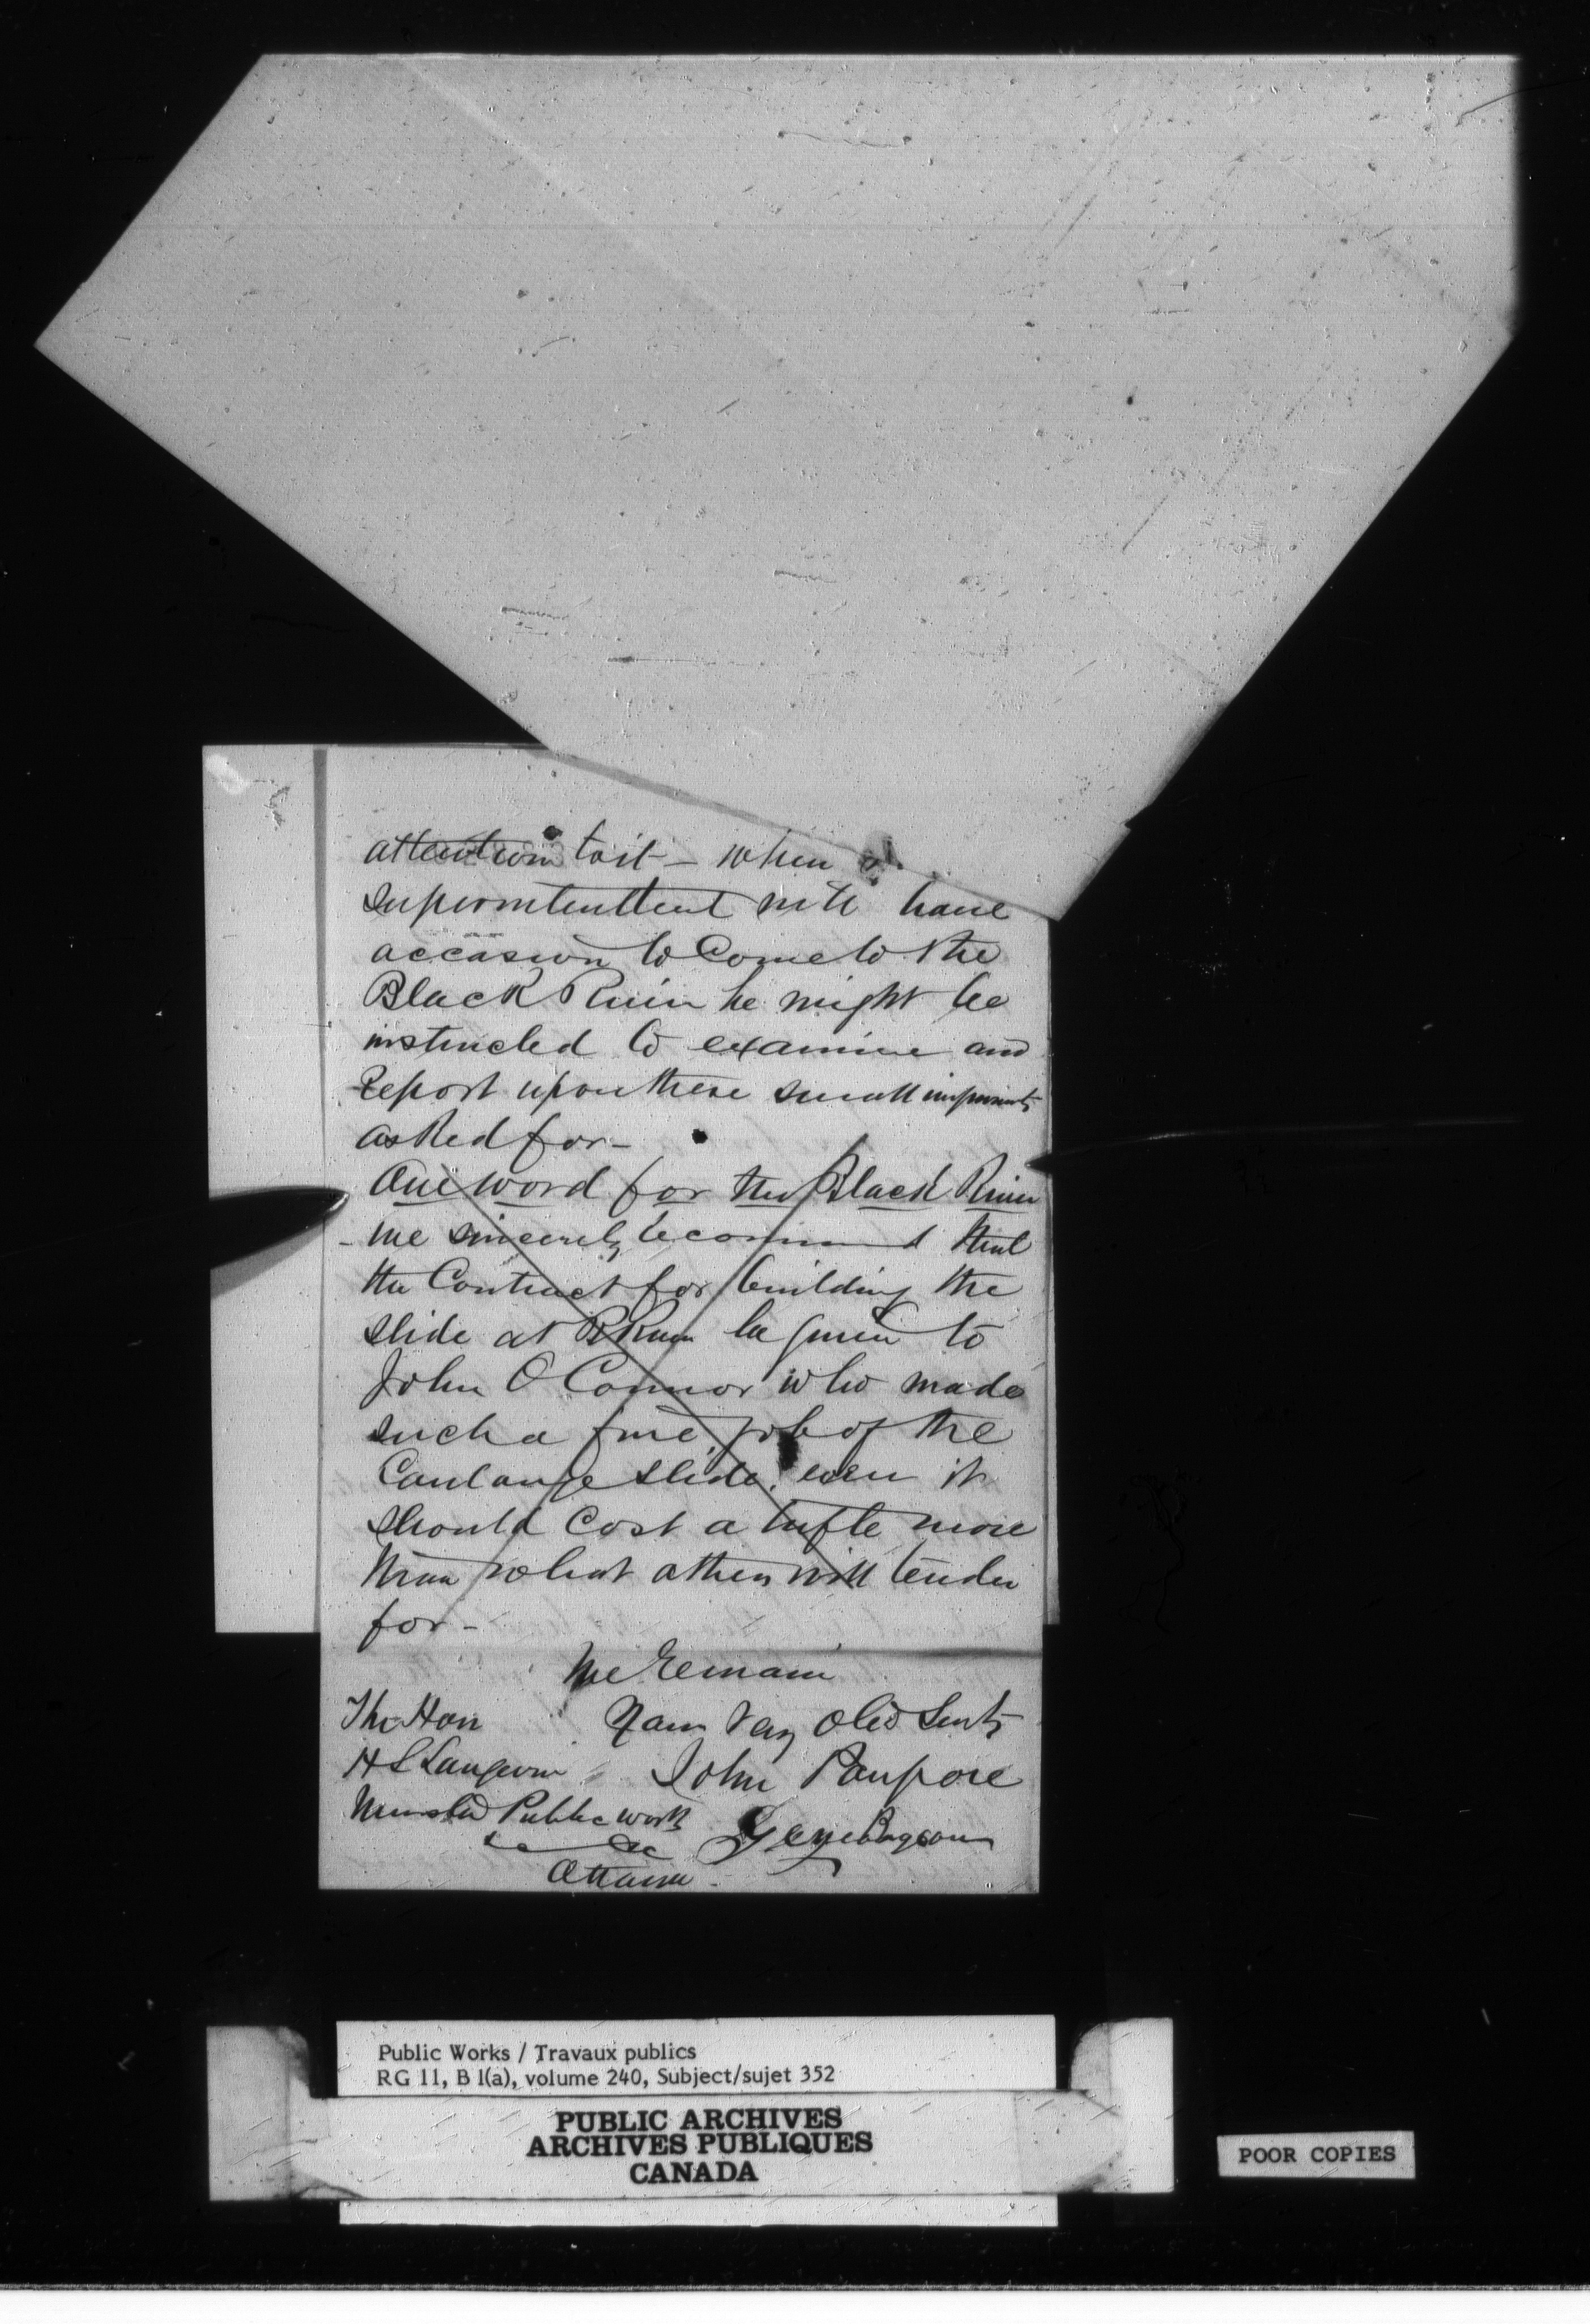 attention to it – when
Superintendent will have
occasion to Come to the
Black River he might be
instructed to examine and
Report upon these small improvmts
asked for –
One word for the Black River
– we sincerely recommend that
the Contract for building the
slide at B River be given to
John O Connor who made
such a fine job of the
Coulonge slide, even it
should cost a trifle more
than what others will tender
for –
We remain
Your Very Obed Servts
The Hon
H L Langevin
John Poupore
Minister Public Works
&c &c
Ottawa –
Public Works / Travaux publics
RG 11, B 1(a), volume 240, Subject/sujet 352
PUBLIC ARCHIVES
ARCHIVES PUBLIQUES
CANADA
POOR COPIES